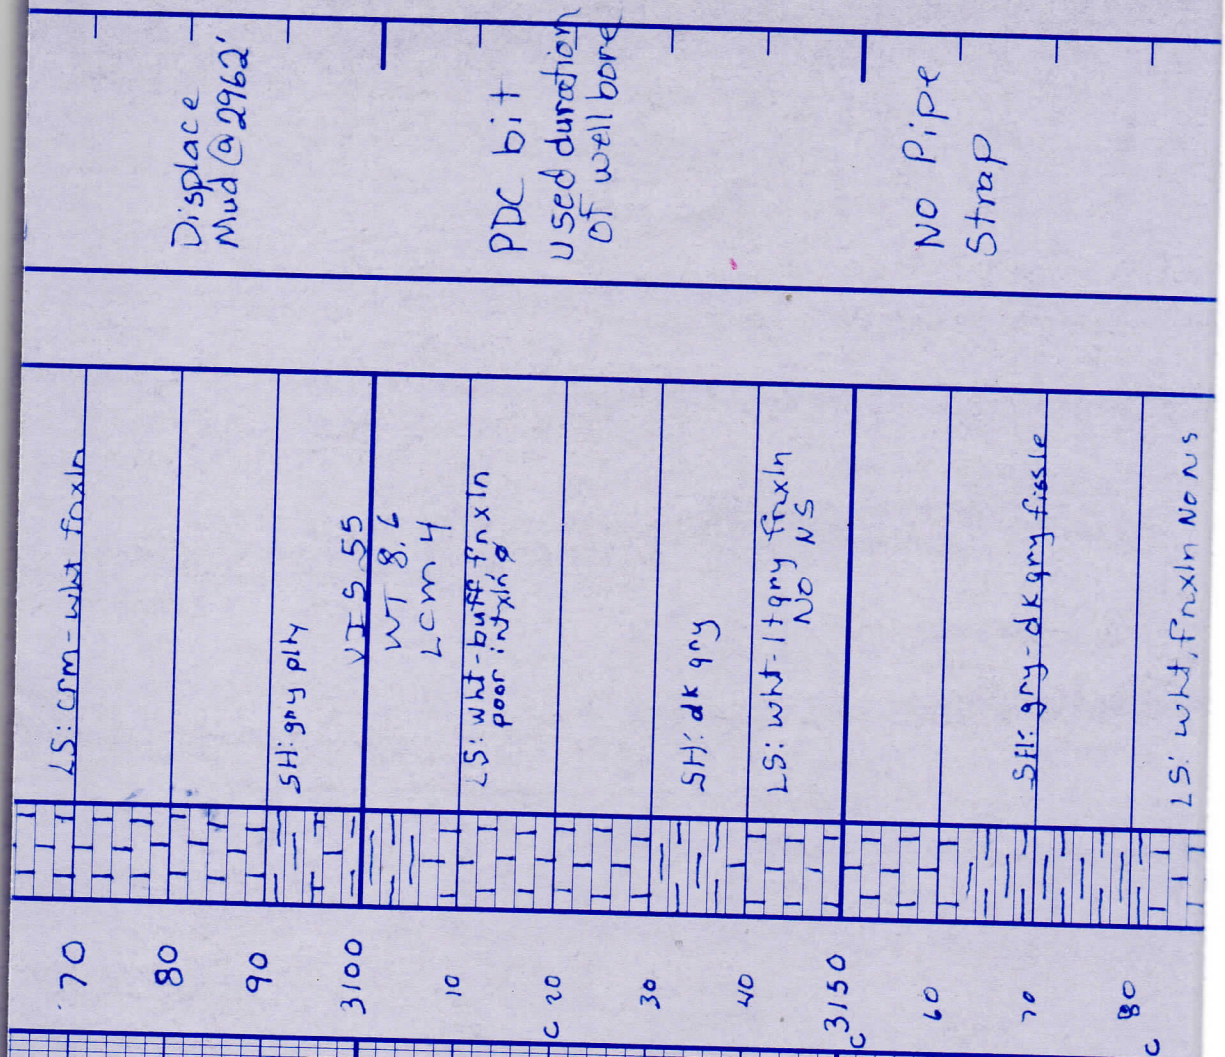 Displace
Mud @ 2962'
PDC bit
Used duration
of well bore
No Pipe
Strap
LS: crm-wht fnxln
SH: gry plty
VIS 55
WT 8.6
LCM 4
LS: wht-buff fnxln
poor intxln ø
SH: dk gry
LS: wht-ltgry fnxln
NO NS
SH: gry-dk gry fissle
LS: wht, fnxln NO NS
70
80
90
3100
10
C 20
30
40
C 3150
60
70
80
C